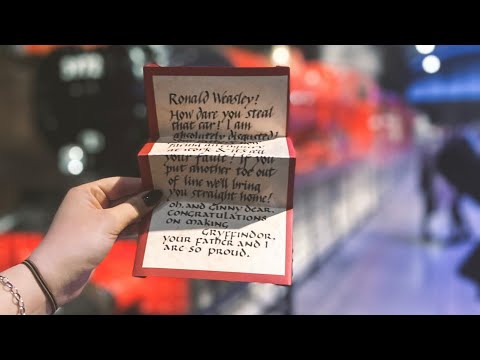 Ronald Weasley!
How dare you steal
that car! I am
absolutely disgusted!
at work & it's all
your fault! If you
put another toe out
of line we'll bring
you straight home!
oh, and Ginny dear,
congratulations
on making
Gryffindor,
your father and I
are so proud.